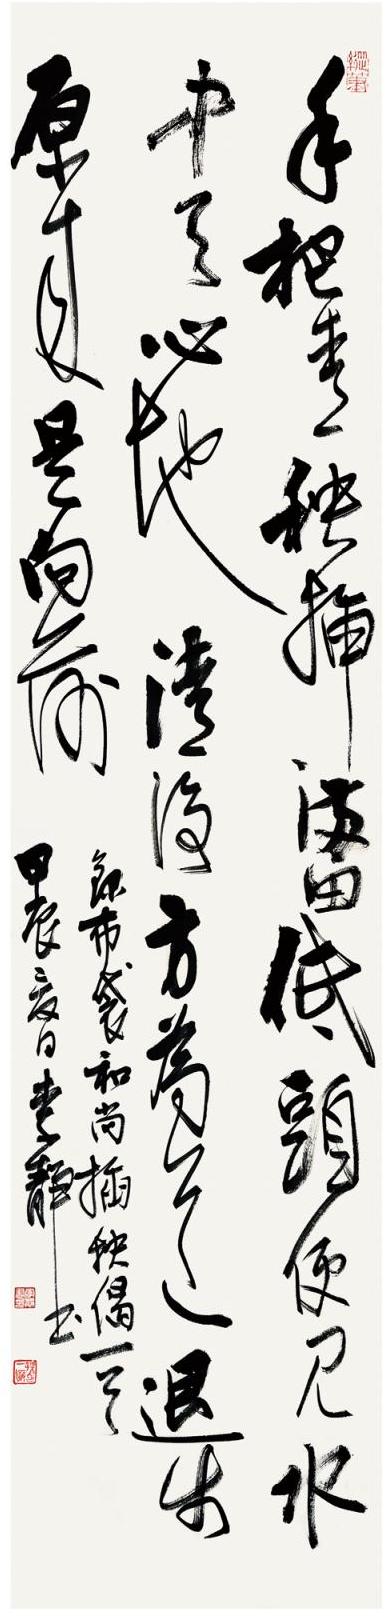 手把青秧插滿田低頭便見水
中天心地清淨方為道退步
原来是向前
錄布袋和尚插秧偈一首
甲辰夏日 靜书